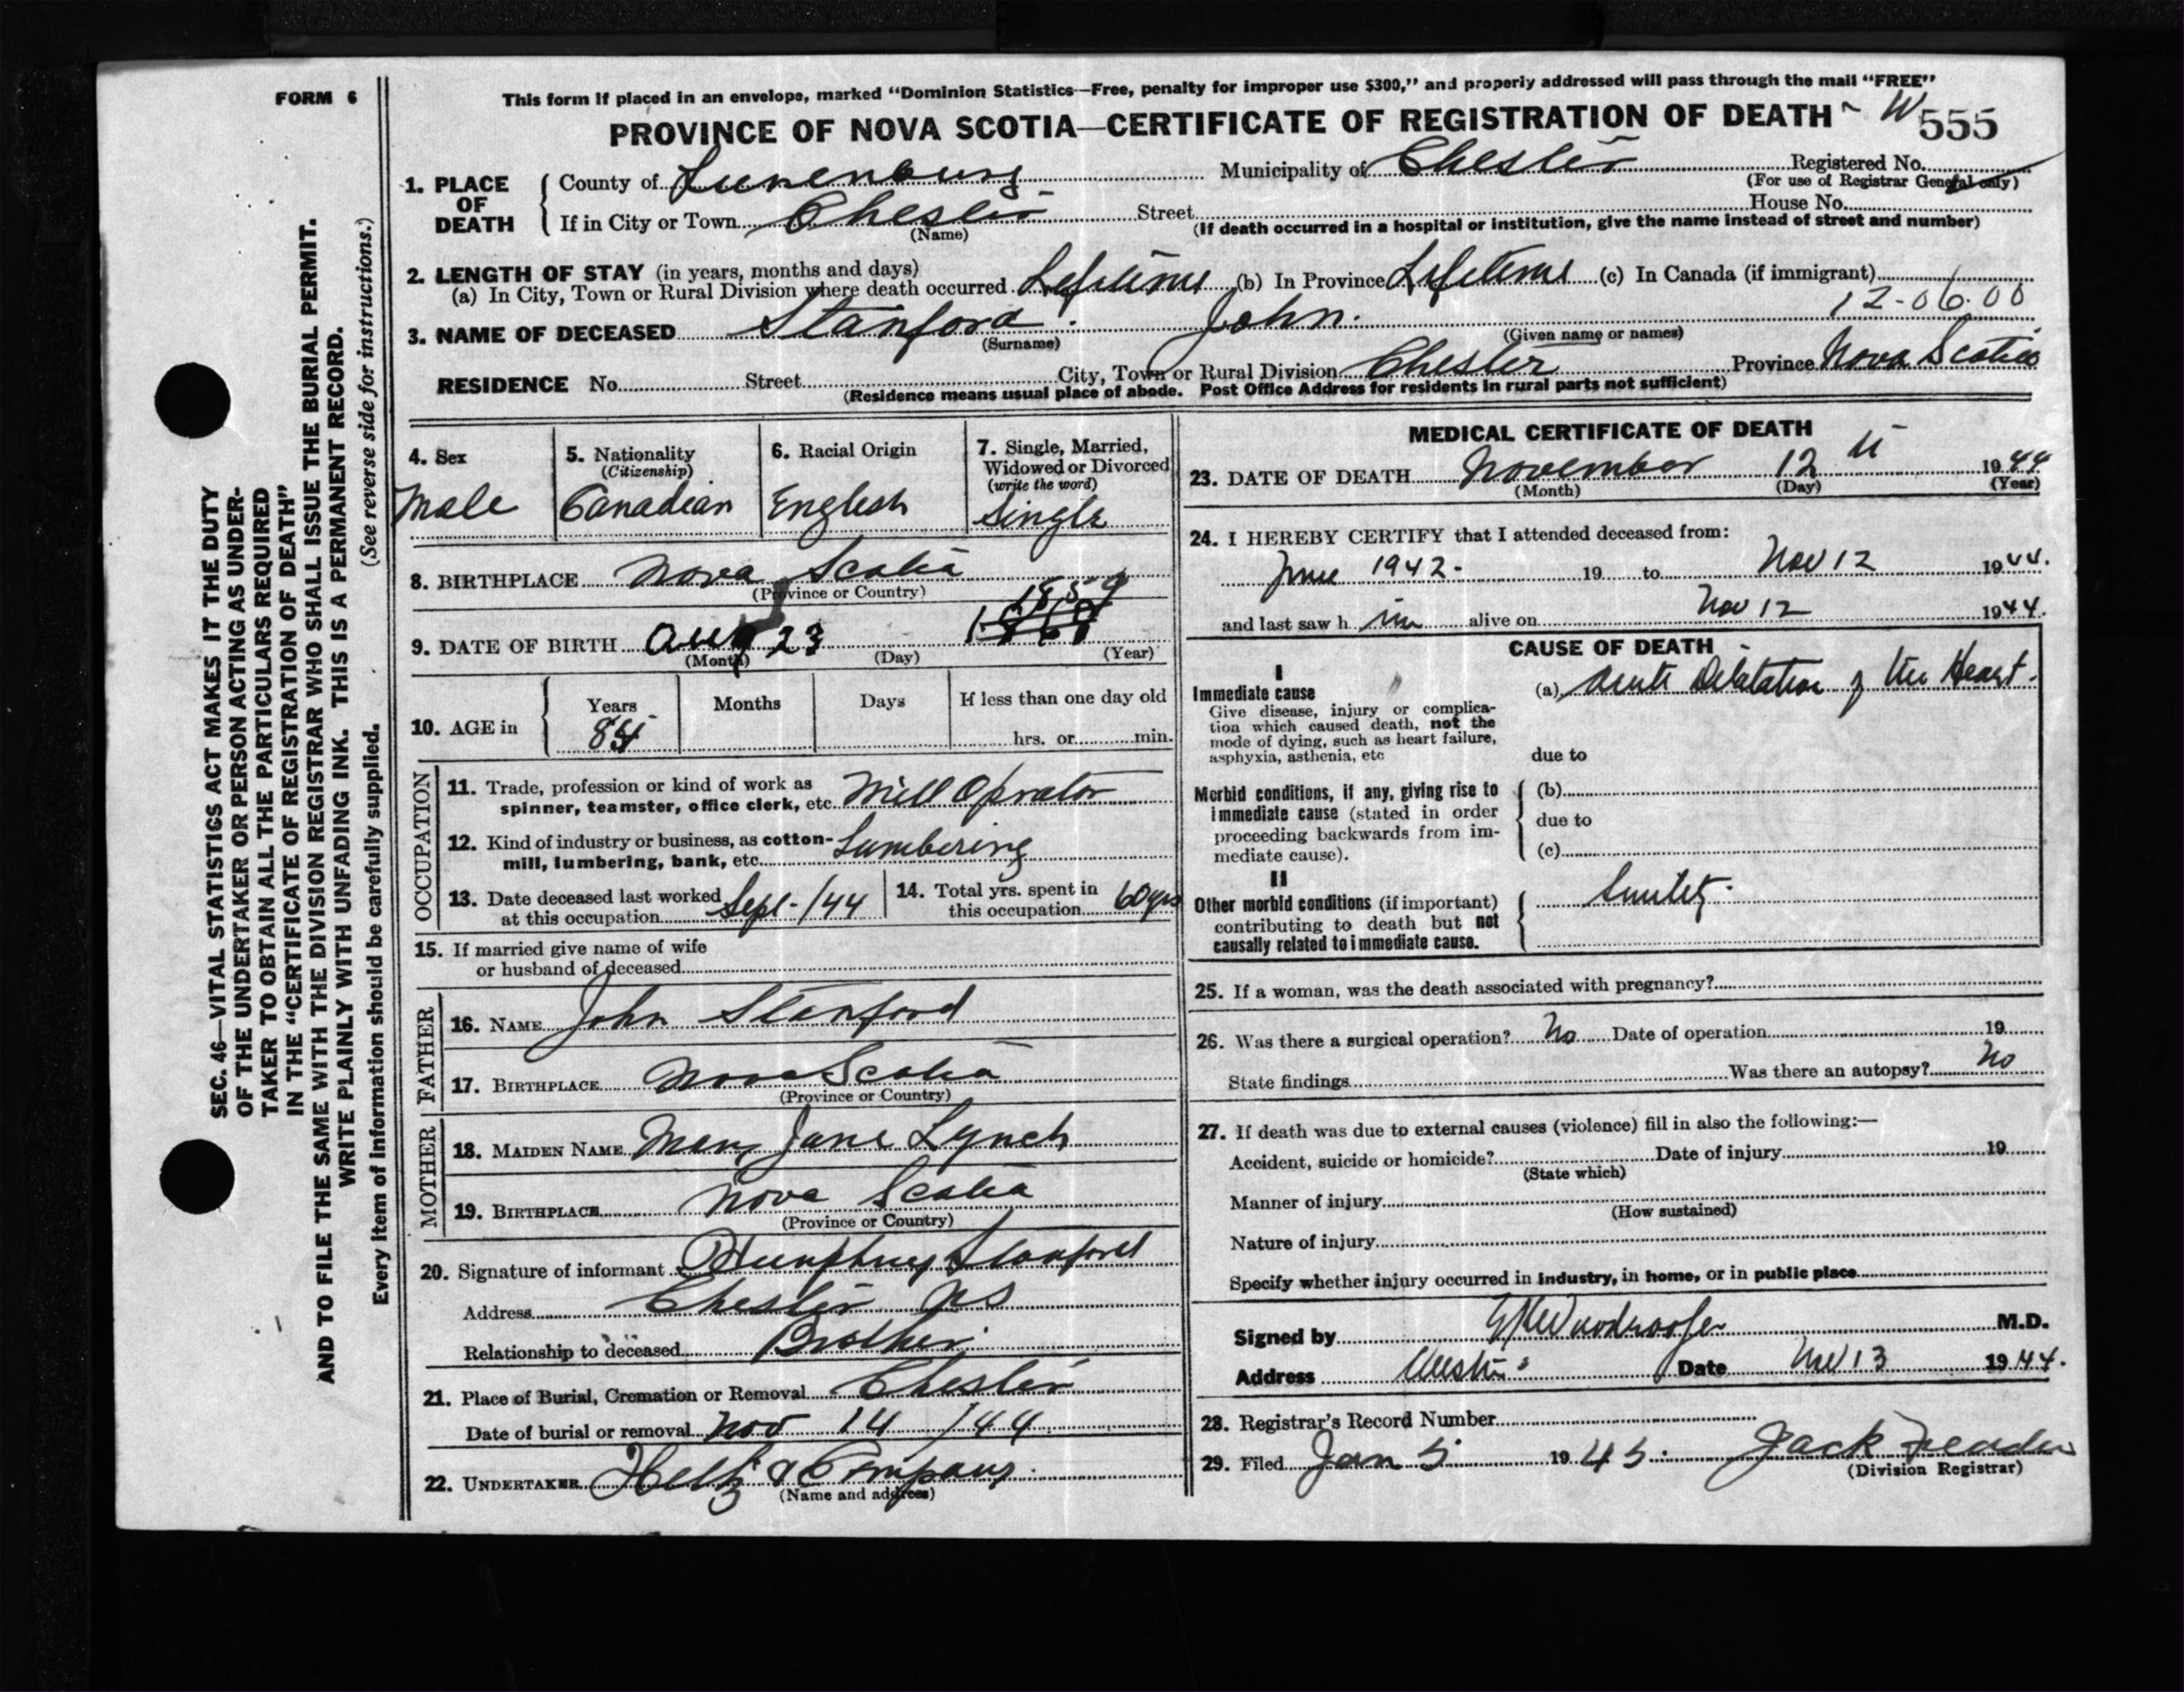 FORM 6
This form if placed in an envelope, marked "Dominion Statistics—Free, penalty for improper use $300," and properly addressed will pass through the mail "FREE"
PROVINCE OF NOVA SCOTIA—CERTIFICATE OF REGISTRATION OF DEATH W 555
1. PLACE OF DEATH
County of Lunenburg Municipality of Chester Registered No.
(For use of Registrar General only)
If in City or Town Chester Street House No.
(Name) (If death occurred in a hospital or institution, give the name instead of street and number)
2. LENGTH OF STAY (in years, months and days)
(a) In City, Town or Rural Division where death occurred Lifetime (b) In Province Lifetime (c) In Canada (if immigrant)
12-06-00
3. NAME OF DECEASED Stanford John
(Surname) (Given name or names)
RESIDENCE No. Street City, Town or Rural Division Chester Province Nova Scotia
(Residence means usual place of abode. Post Office Address for residents in rural parts not sufficient)
4. Sex
Male
5. Nationality
(Citizenship)
Canadian
6. Racial Origin
English
7. Single, Married,
Widowed or Divorced
(write the word)
Single
8. BIRTHPLACE Nova Scotia
(Province or Country)
1859
9. DATE OF BIRTH Aug 23
(Month) (Day) (Year)
10. AGE in
Years Months Days If less than one day old
85 hrs. or min.
OCCUPATION
11. Trade, profession or kind of work as
spinner, teamster, office clerk, etc. Mill Oprator
12. Kind of industry or business, as cotton-
mill, lumbering, bank, etc. Lumbering
13. Date deceased last worked
at this occupation Sept-/44
14. Total yrs. spent in
this occupation 60 yrs
15. If married give name of wife
or husband of deceased
FATHER
16. NAME John Stanford
17. BIRTHPLACE Nova Scotia
(Province or Country)
MOTHER
18. MAIDEN NAME Mary Jane Lynch
19. BIRTHPLACE Nova Scotia
(Province or Country)
20. Signature of informant Humphrey Stanford
Address Chester NS
Relationship to deceased Brother
21. Place of Burial, Cremation or Removal Chester
Date of burial or removal Nov 14 /44
22. UNDERTAKER & Company
(Name and address)
MEDICAL CERTIFICATE OF DEATH
23. DATE OF DEATH November 12 1944
(Month) (Day) (Year)
24. I HEREBY CERTIFY that I attended deceased from:
June 1942. 19 to Nov 12 1944.
and last saw h im alive on Nov 12 1944.
CAUSE OF DEATH
I
Immediate cause
Give disease, injury or complica-
tion which caused death, not the
mode of dying, such as heart failure,
asphyxia, asthenia, etc
(a) Acute Dilatation of the Heart.
due to
Morbid conditions, if any, giving rise to
immediate cause (stated in order
proceeding backwards from im-
mediate cause).
(b)
due to
(c)
II
Other morbid conditions (if important)
contributing to death but not
causally related to immediate cause.
25. If a woman, was the death associated with pregnancy?
26. Was there a surgical operation? No Date of operation 19
State findings Was there an autopsy? No
27. If death was due to external causes (violence) fill in also the following:—
Accident, suicide or homicide? Date of injury 19
(State which)
Manner of injury
(How sustained)
Nature of injury
Specify whether injury occurred in industry, in home, or in public place
Signed by M.D.
Address Chester Date Nov 13 1944.
28. Registrar's Record Number
29. Filed Jan 5 1945. Jack
(Division Registrar)
SEC. 46—VITAL STATISTICS ACT MAKES IT THE DUTY
OF THE UNDERTAKER OR PERSON ACTING AS UNDER-
TAKER TO OBTAIN ALL THE PARTICULARS REQUIRED
IN THE "CERTIFICATE OF REGISTRATION OF DEATH"
AND TO FILE THE SAME WITH THE DIVISION REGISTRAR WHO SHALL ISSUE THE BURIAL PERMIT.
WRITE PLAINLY WITH UNFADING INK. THIS IS A PERMANENT RECORD.
Every item of information should be carefully supplied. (See reverse side for instructions.)